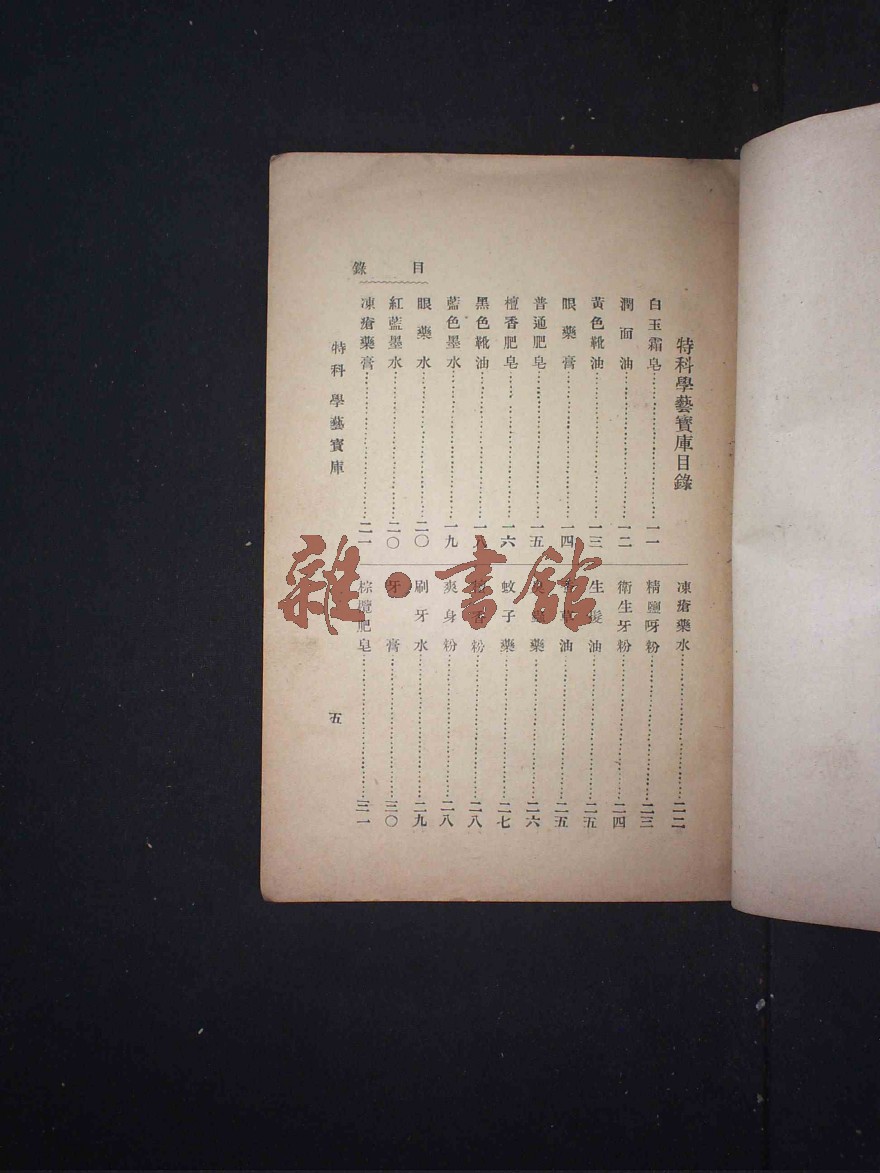 特科學藝寶庫目錄
白玉霜皂…………一一
潤面油…………一二
黃色靴油…………一三
眼藥膏…………一四
普通肥皂…………一五
檀香肥皂…………一六
黑色靴油…………一八
藍色墨水…………一九
眼藥水…………二〇
紅藍墨水…………二〇
凍瘡藥膏…………二一
凍瘡藥水…………二二
精鹽呀粉…………二三
衛生牙粉…………二四
生髮油…………二五
香草油…………二五
藥…………二六
蚊子藥…………二七
香粉…………二八
爽身粉…………二八
刷牙水…………二九
牙膏…………三〇
棕欖肥皂…………三一
目錄
特科學藝寶庫
五
雜·書館